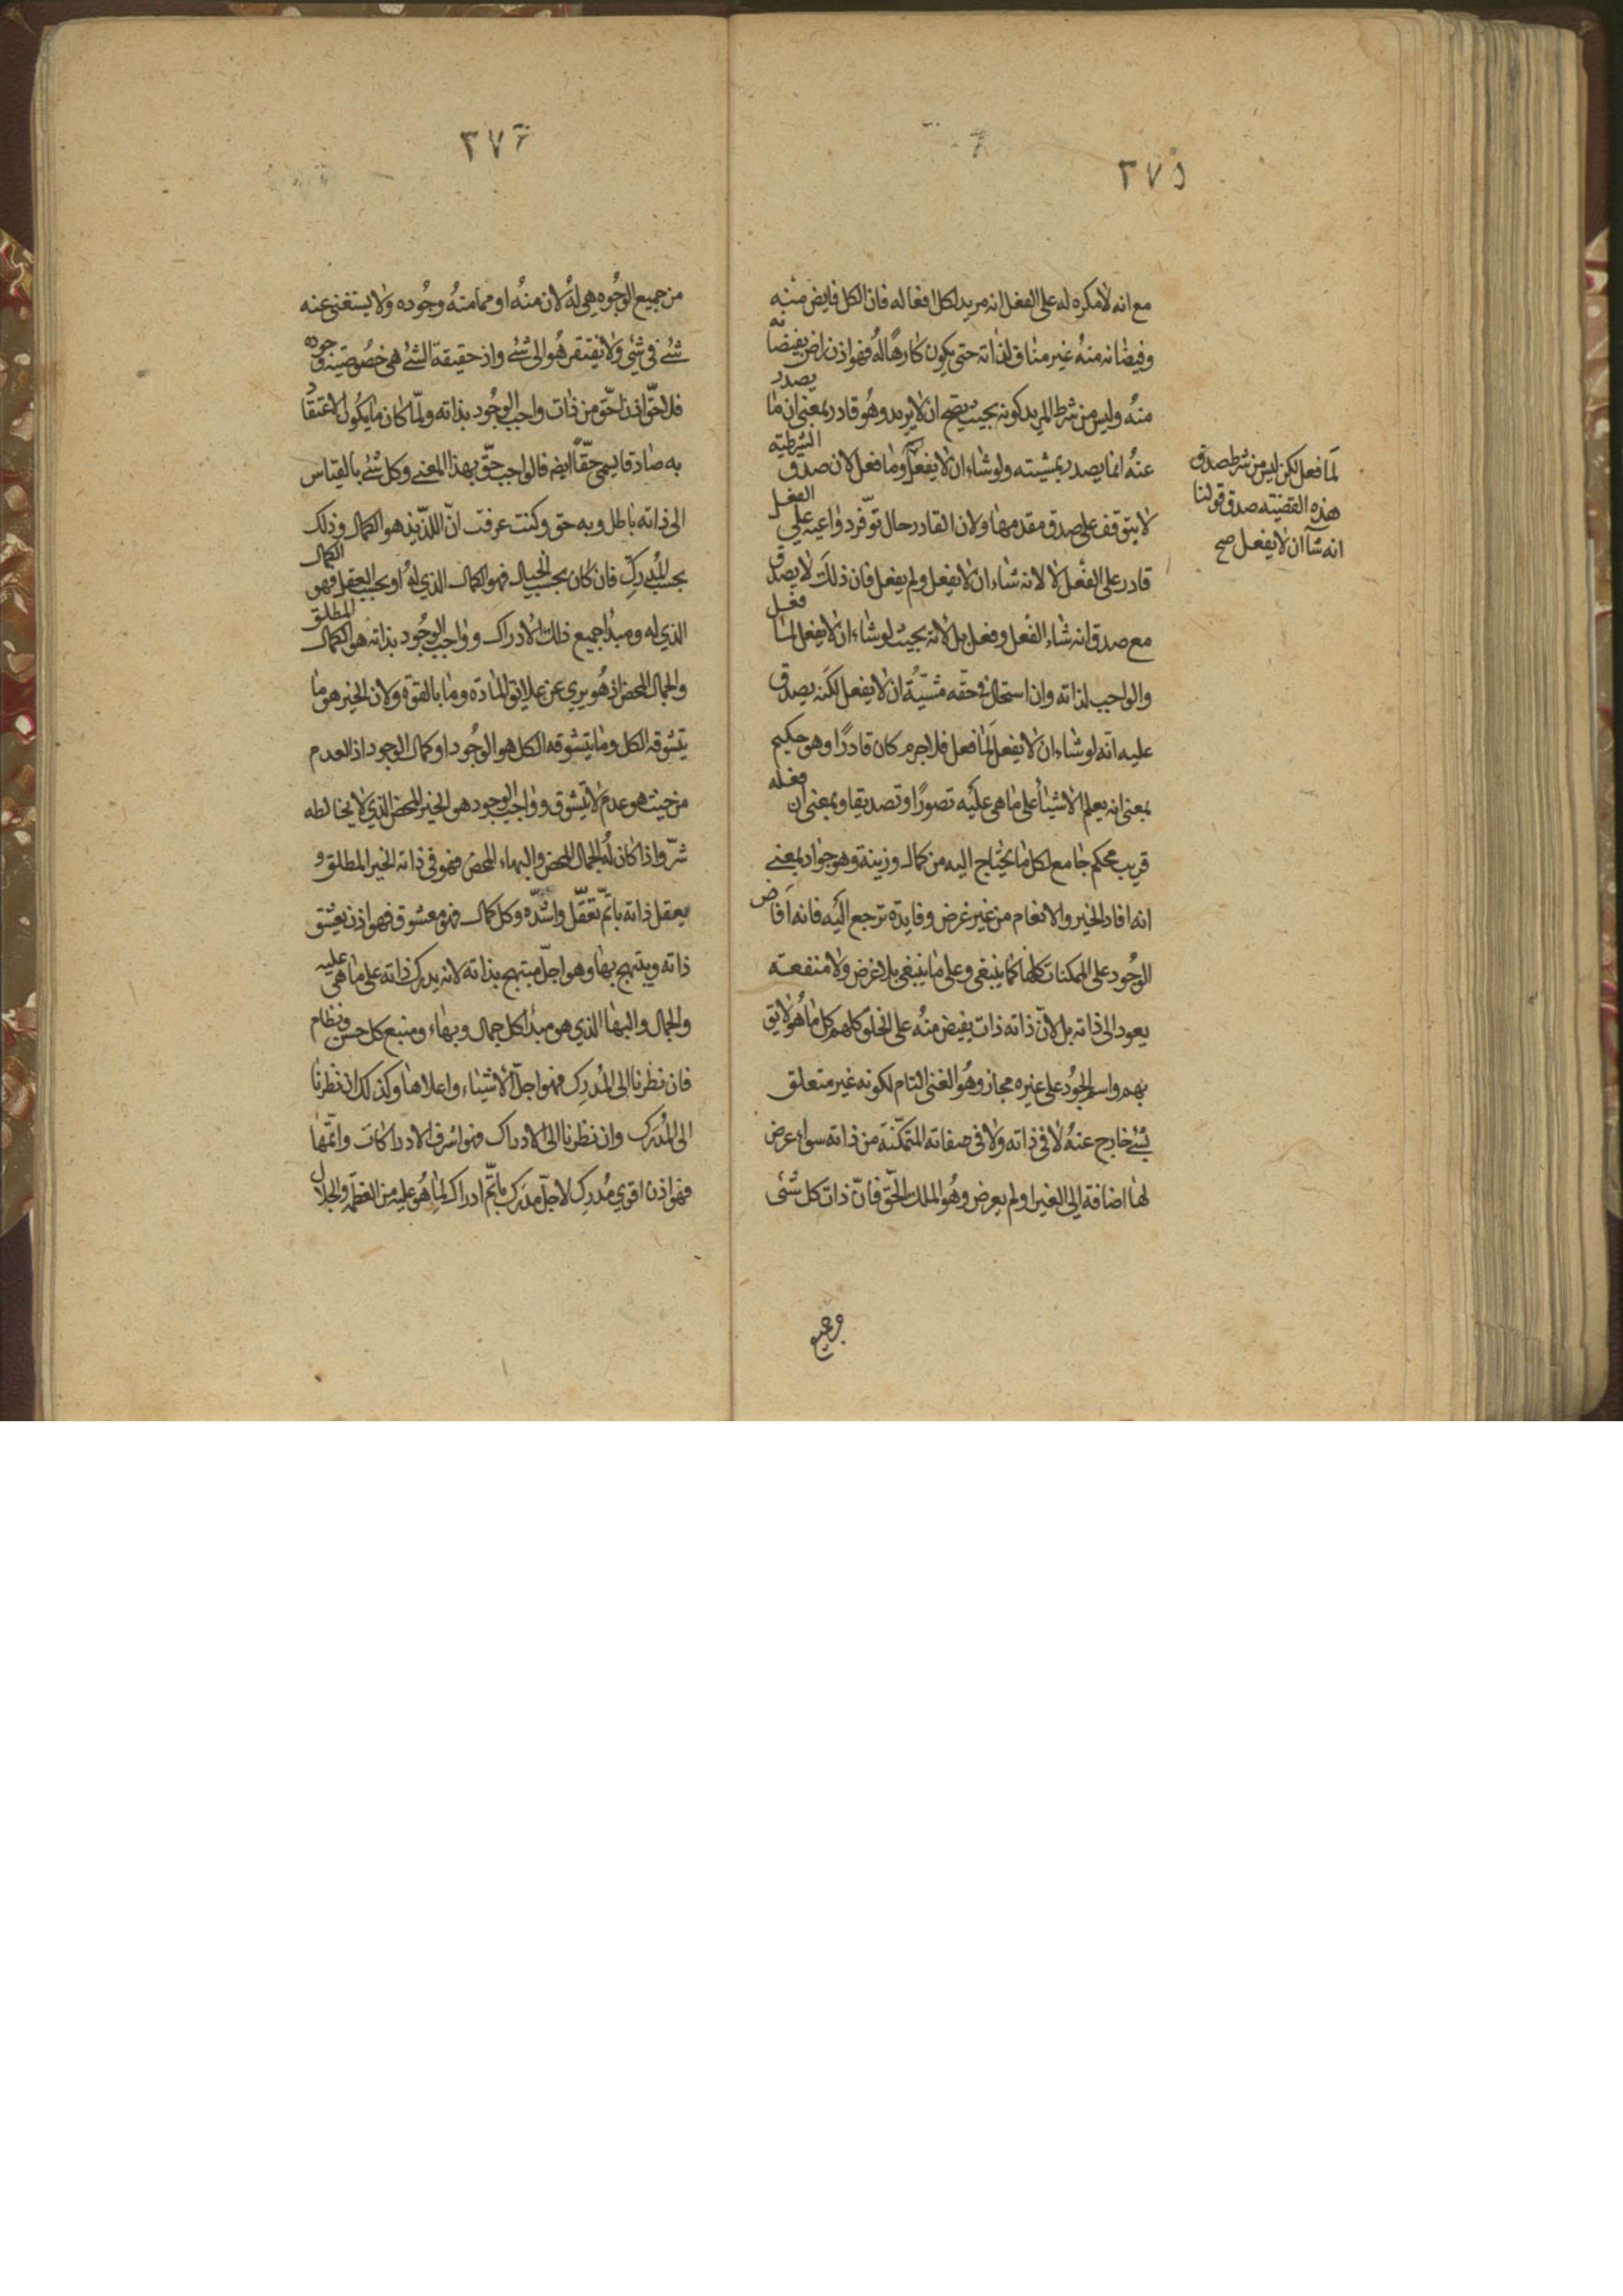 ٣٧٥
مع انه لامكره له على الفعل انه مريد لكل افعاله فان الكل فايض منه
وفيضانه منهُ غير مناف لذاته حتى يكون كارهًا لهُ فهو اذن راض بفيضانه
منهُ وليس من شرط المريد كونه بحيث يصح ان لا يريد وهُو قادر بمعنى ان ما يصدر
عنهُ انما يصدر بمشيته ولو شاء ان لا يفعل وما فعل لان صدق الشرطية
لا يتوقف على صدق مقدمها ولان القادر حال توفّر دواعيه على الفعل
قادر على الفعل لا لانه شاء ان لا يفعل ولم يفعل فان ذلك لا يصدق
مع صدق انه شاء الفعل وفعل بل لانه بحيث لو شاء ان لا يفعل لما فعل
والواجب لذاته وان استحال في حقّه مشيّة ان لا يفعل لكنه يصدق
عليه انّه لو شاء ان لا يفعل لَما فعل فلا جرم كان قادرًا وهو حكيم
بمعنى انه يعلم الاشياء على ما هى عليه تصورًا وتصديقا وبمعنى ان فعله
قريب محكم جامع لكل ما يحتاج اليه من كمال وزينة وهو جواد بمعنى
انه افاد الخير والانعام من غير غرض وفايدة ترجع اليه فانه افاض
الوجُود على الممكنات كلها كما ينبغى وعلى ما ينبغى بلا غرض ولا منفعته
يعود الى ذاته بل لانّ ذاته ذات يفيض منهُ على الخلق كلهم كل ما هُو لايق
بهم واسم الجوُد على غيره مجاز وهُو الغنى التام لكونه غير متعلق
بشئ خارج عنهُ لا في ذاته ولا في صفاته المتمكّنة من ذاته سواء عرض
لها اضافة الى الغير او لم يعرض وهُو الملك الحّق فانّ ذات كل شئ
لَما فعل لكن ليس من شرط صدق
هذه القضيته صدق قولنا
انه شآ ان لا يفعل صح
٣٧٦
من جميع الوجُوه هي لهُ لان منهُ او مما منهُ وجُوده ولا يستغنى عنه
شئ في شئ ولا يفتقر هُو الى شئ واذ حقيقة الشئ هى خصُوصيّة وجوده
فلا حقّ اذن احّق من ذات واجب الوجُود بذاته ولّما كان ما يكُون الاعتقاد
به صادقا يسمى حقّاً ايضا فالواجب حقّ بهذا المعنى وكل شئ بالقياس
الى ذاته باطل وبه حق وكنت عرفت انّ اللذّيذ هو الكمال وذلك
بحسب المُدركِ فان كان بحسب الخيال فهو الكمال الذي لهُ او بحسب العقل فهو الكمال
الذي له ومبدا جميع ذلك الادراك وواجب الوجُود بذاته هو الكمال المطلق
والجمال المحض اذ هُو بري عن علايق المادة وما بالقوة ولان الخير هو ما
يتشوقه الكل وما يتشوقه الكل هو الوجُود او كمال الوجود اذ العدم
من حيث هو عدم لا يتشوق وواجب الوجود هو الخير المحض الذي لا يخالطه
شرّ واذا كان لهُ الجمال المحض والبهاء المحض فهو في ذاته الخير المطلق و
يعقل ذاته باتّم تعّقل واشدّه وكل كمال فهو معشوق فهو اذن يعشق
ذاته ويبتهج بها وهو اجلّ مبتهج بذاته لانه يدرك ذاته على ما هى عليه
والجمال والبهاء الذي هو مبدا كل جمال وبهاء ومنبع كل حسن ونظام
فان نظرنا الى المُدرِك فهو اجلّ الاشياء واعلاها وكذلك ان نظرنا
الى المُدرَك وان نظرنا الى الادراك فهو اشرف الادراكات واتمّها
فهو اذن اقوي مُدرِك لاجلّ مدرَك باتّم ادراك لِما هُو عليه من العظمة والجلال